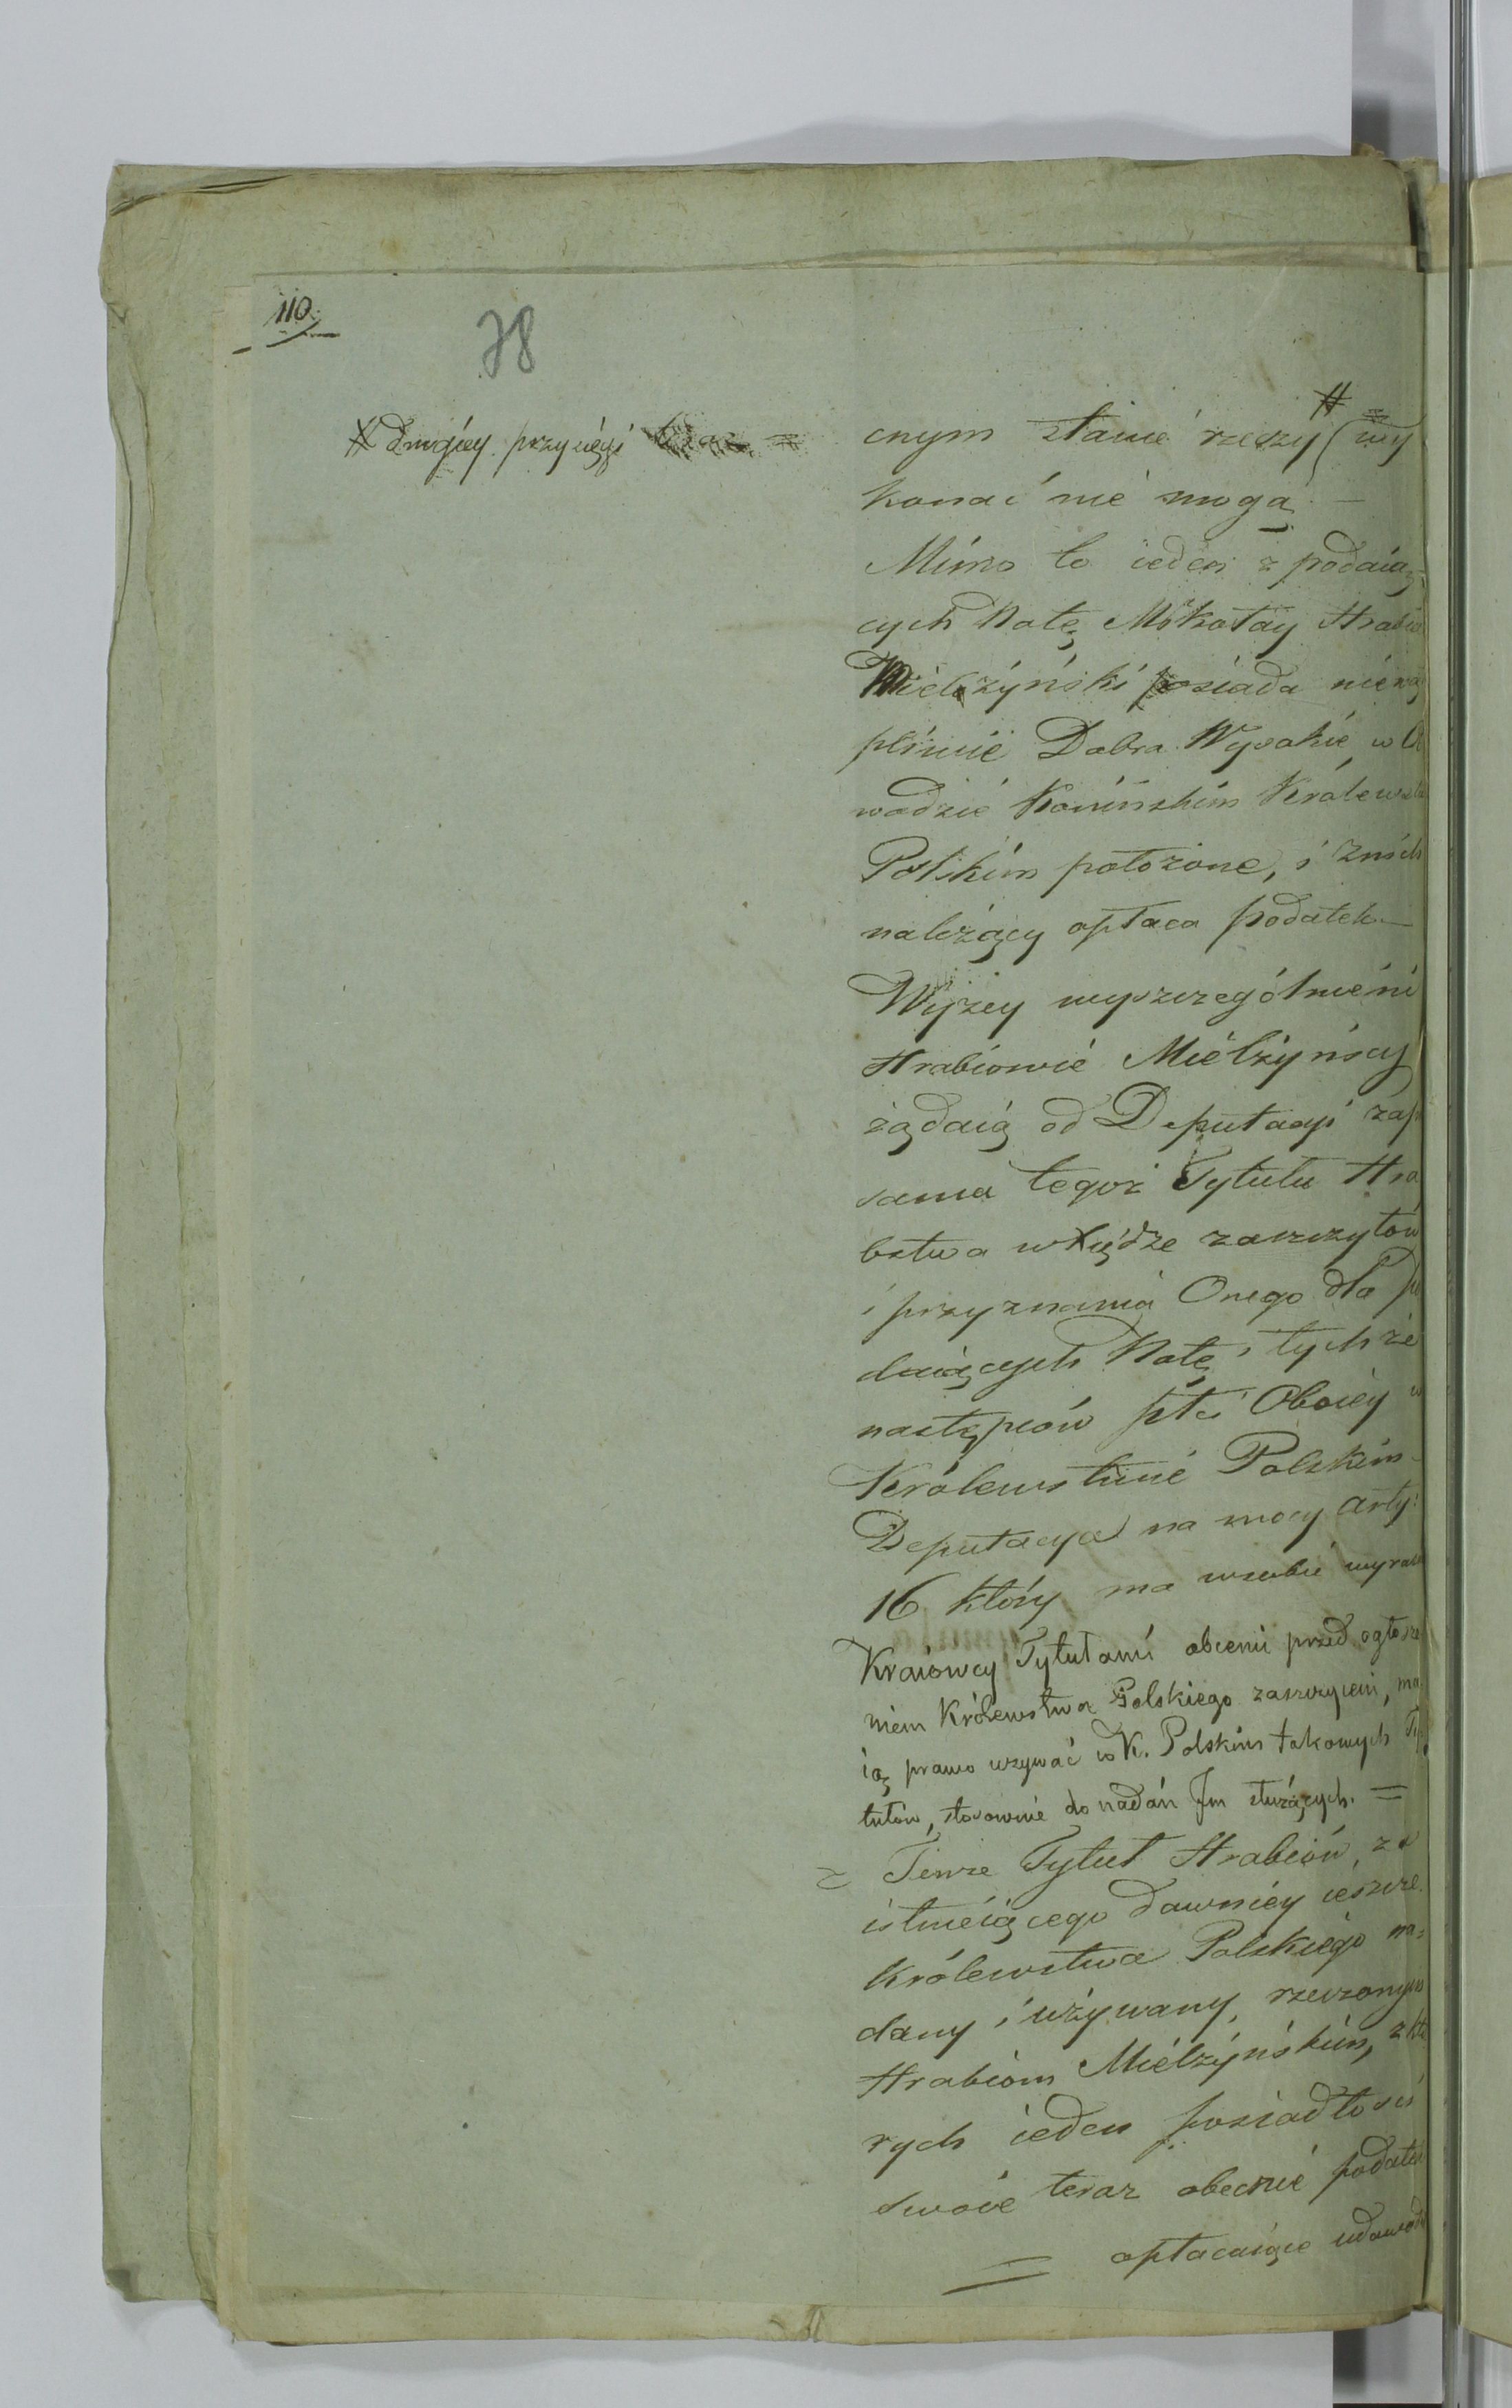 110.
78
# drugiey przysięgi
cnym stanie rzeczy # wy
konać nie mogą. —
Mimo to ieden z podaią-
cych Notę Mikołay Hrabia
Mielżyński posiada niewąt
pliwie Dobra Wysokie, w Ob
wodzie Konińskim Królewstw
Polskim położone, i znich
należący opłaca podatek —
Wyżey wyszczególnieni
Hrabiowie Mielżyńscy
żądaią od Deputacyi zap
sania tegoż Tytułu Hra
bstwa w Xiędze zaszczytów
i przyznania Onego dla po
daiących Notę i tychże
następców płci Oboiey w
Królewstwie Polskim —
Deputacya na mocy arty:
16 który ma w sobie wyraz
Kraiowcy Tytułami obcemi przed ogłosze
niem Królewstwa Polskiego zaszczyceni, ma
ią prawo używać w K. Polskim takowych Ty
tułów, stosownie do nadań Im służących. =
Tenże Tytuł Hrabiów, za
istnieiącego dawniey ieszcze
Królewstwa Polskiego na=
dany i używany, rzeczonym
Hrabiom Mielżyńskim, z któ
rych ieden posiadłości
swoie teraz obecnie podatek
= opłacaiące udowod